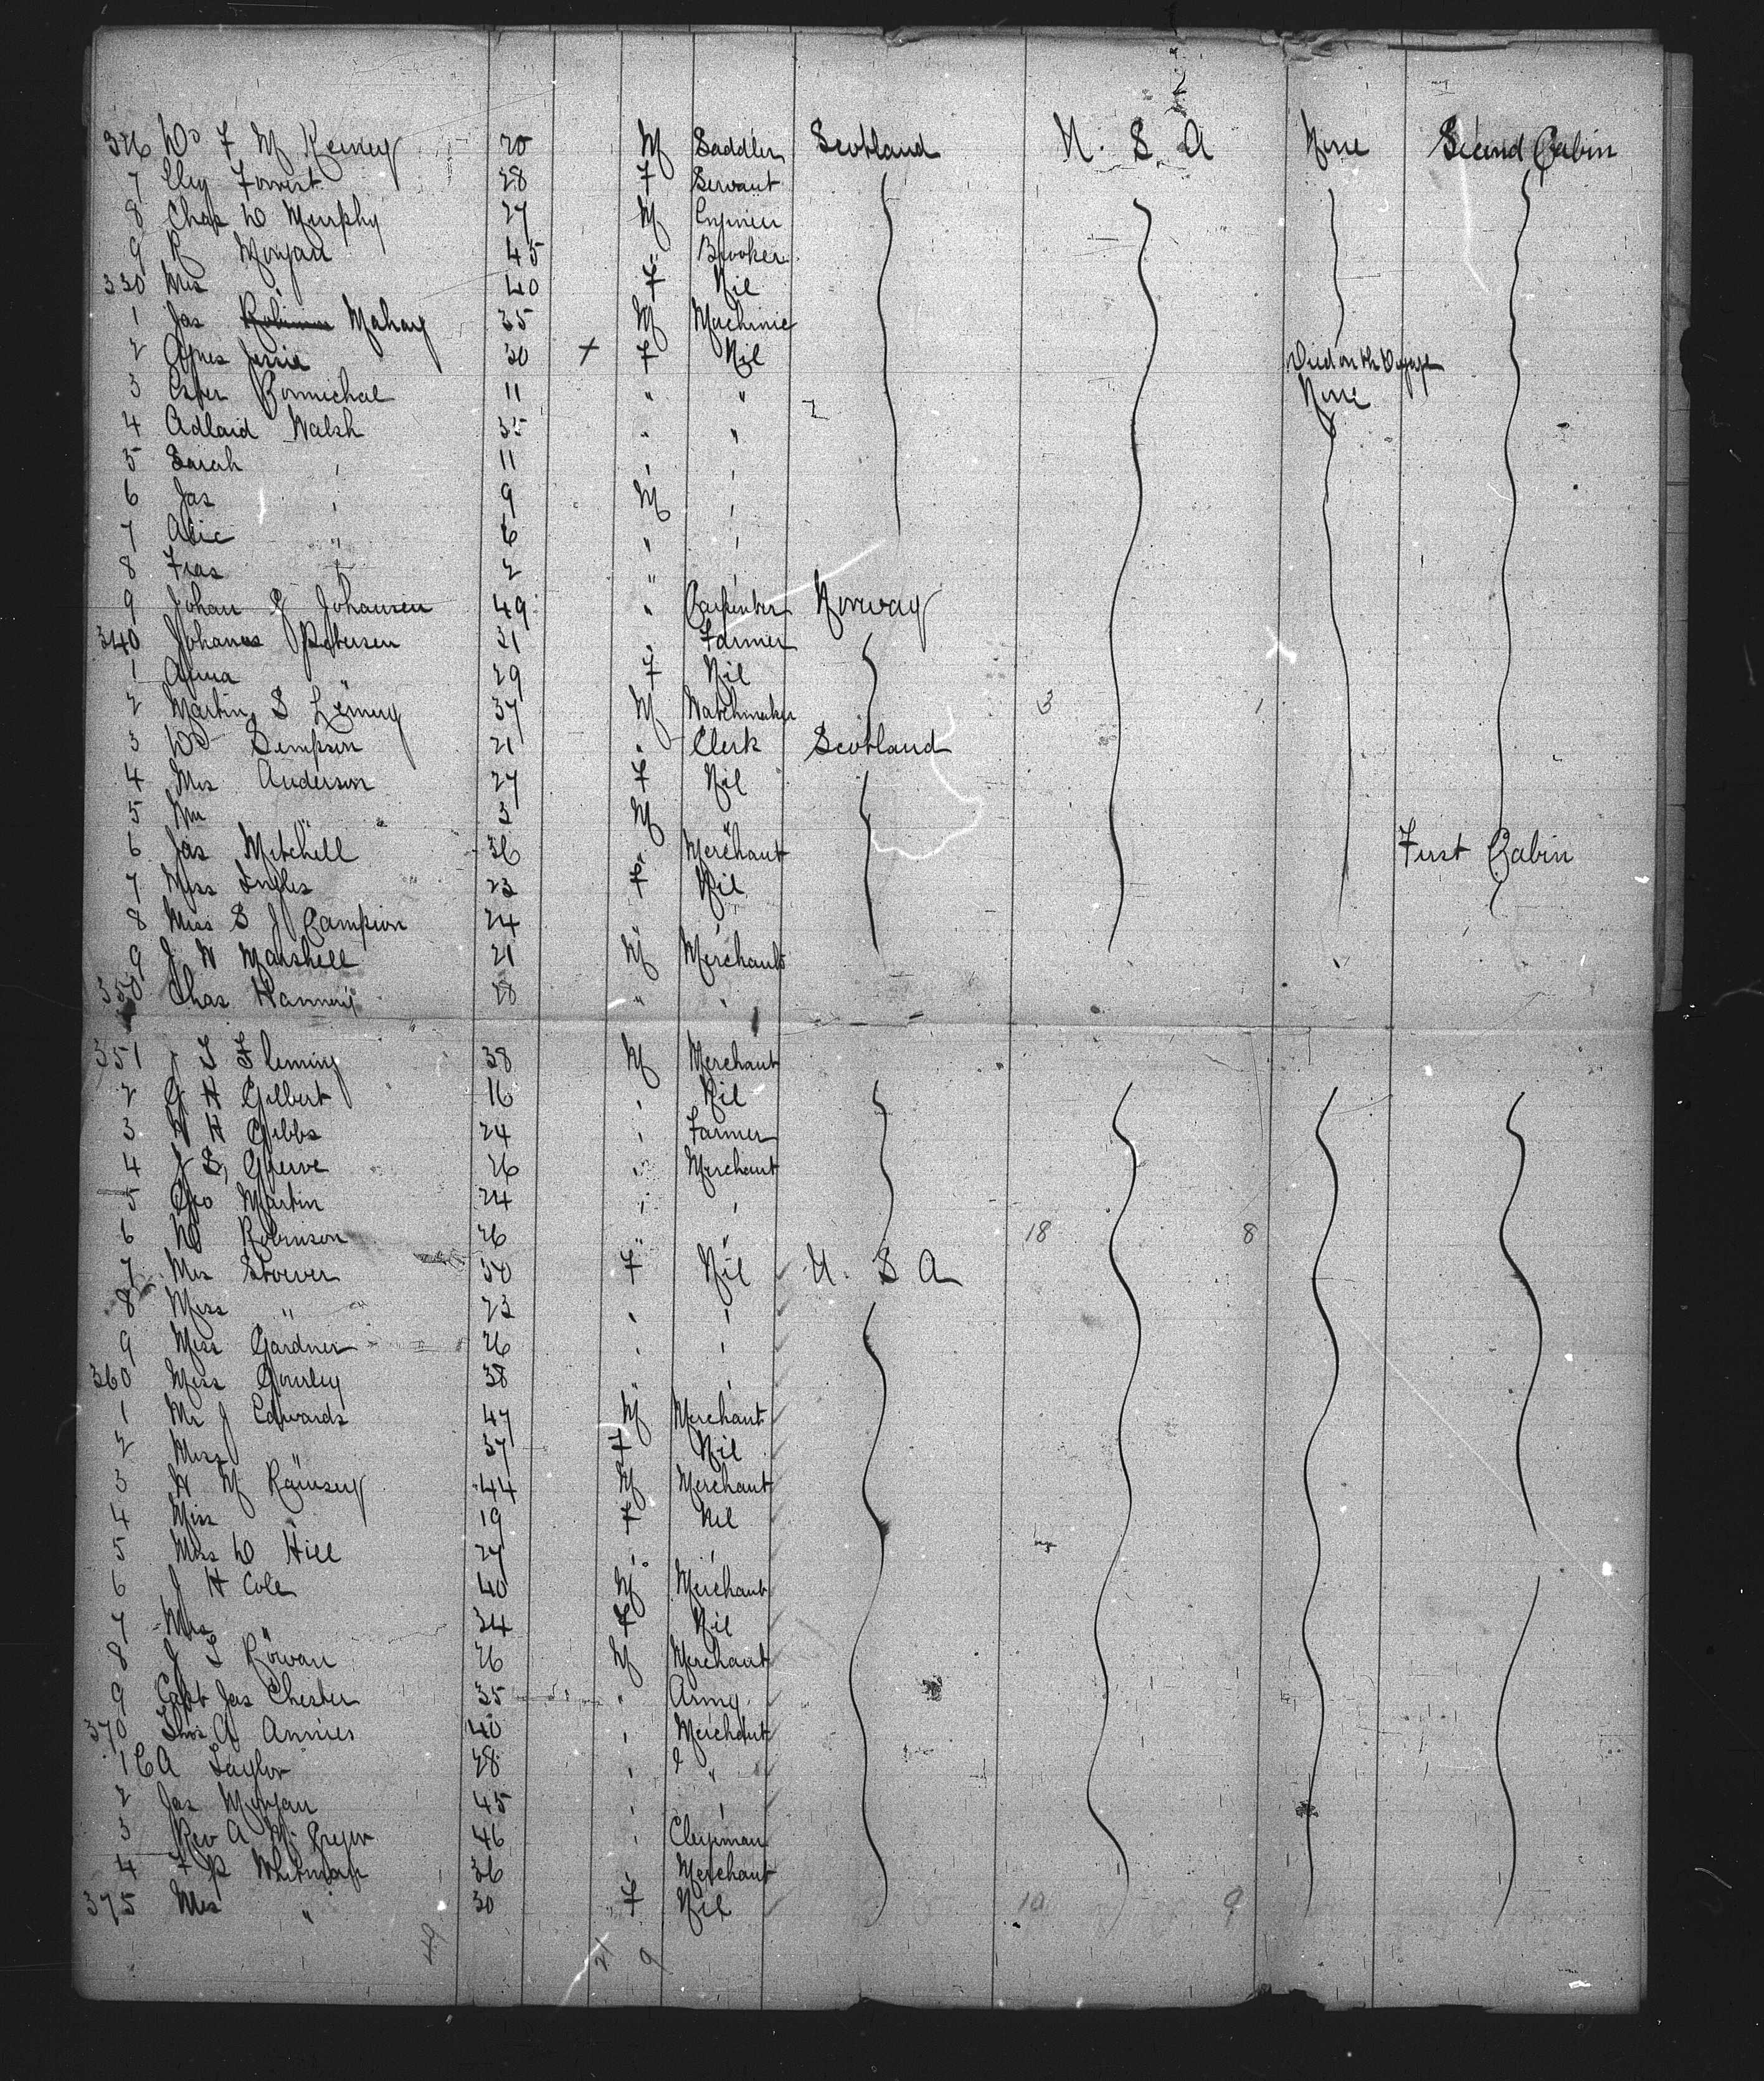 326 Wm F M Kenney 20 M Saddler Scotland U. S. A None Second Cabin
7 Forrest 28 F Servant
8 Chas W Murphy 27 M Engineer
9 R Morgan 45 " Brooker
330 Mrs " 40 F Nil
1 Jas Mahary 35 M Machinic
2 Agnes Jessie 30 + F Nil Died on the Voyage
3 Ester Bormichal 11 " " None
4 Adlaid Walsh 35 " "
5 Sarah " 11 " "
6 Jas " 9 M "
7 Alic " 6 " "
8 Fras " 2 " "
9 Johan Johansen 49 " Carpenter Norway
340 Johanas Petersen 31 " Farmer
1 Anna " 29 F Nil
2 Martin S 37 M Watchmaker 3 1
3 Wm Simpson 21 " Clerk Scotland
4 Mrs Anderson 27 F Nil
5 Wm " 3 M "
6 Jas Mitchell 36 " Merchant First Cabin
7 Miss Ingles 23 F Nil
8 Miss S J Campion 24 " "
9 J W Marshell 21 M Merchant
350 Chas Hannery 28 " "
351 J T Fleming 38 M Merchant
2 G H Gilbert 16 " Nil
3 H H Gibbs 24 " Farmer
4 J S Grieve 26 " Merchant
5 Geo Martin 24 " "
6 W Robinson 26 " " 18 8
7 Mrs Stoever 50 F Nil U. S A
8 Miss " 23 " "
9 Miss Gardner 26 " "
360 Miss Gourley 38 " "
1 Mr J Edwards 47 M Merchant
2 Miss " 37 F Nil
3 H M Ramsey 44 M Merchant
4 Miss " 19 F Nil
5 Miss W Hill 27 " "
6 J H Cole 40 M Merchant
7 Mrs " 34 F Nil
8 J T Rowan 26 M Merchant
9 Capt Jas Chester 35 " Army
370 Thos A Annies 40 " Merchant
1 C A Taylor 28 " "
2 Jas Morgan 45 " "
3 Rev A 46 " Clergman
4 F R Whitman 36 " Merchant
375 Mrs " 30 F Nil 10 9
49 21 9